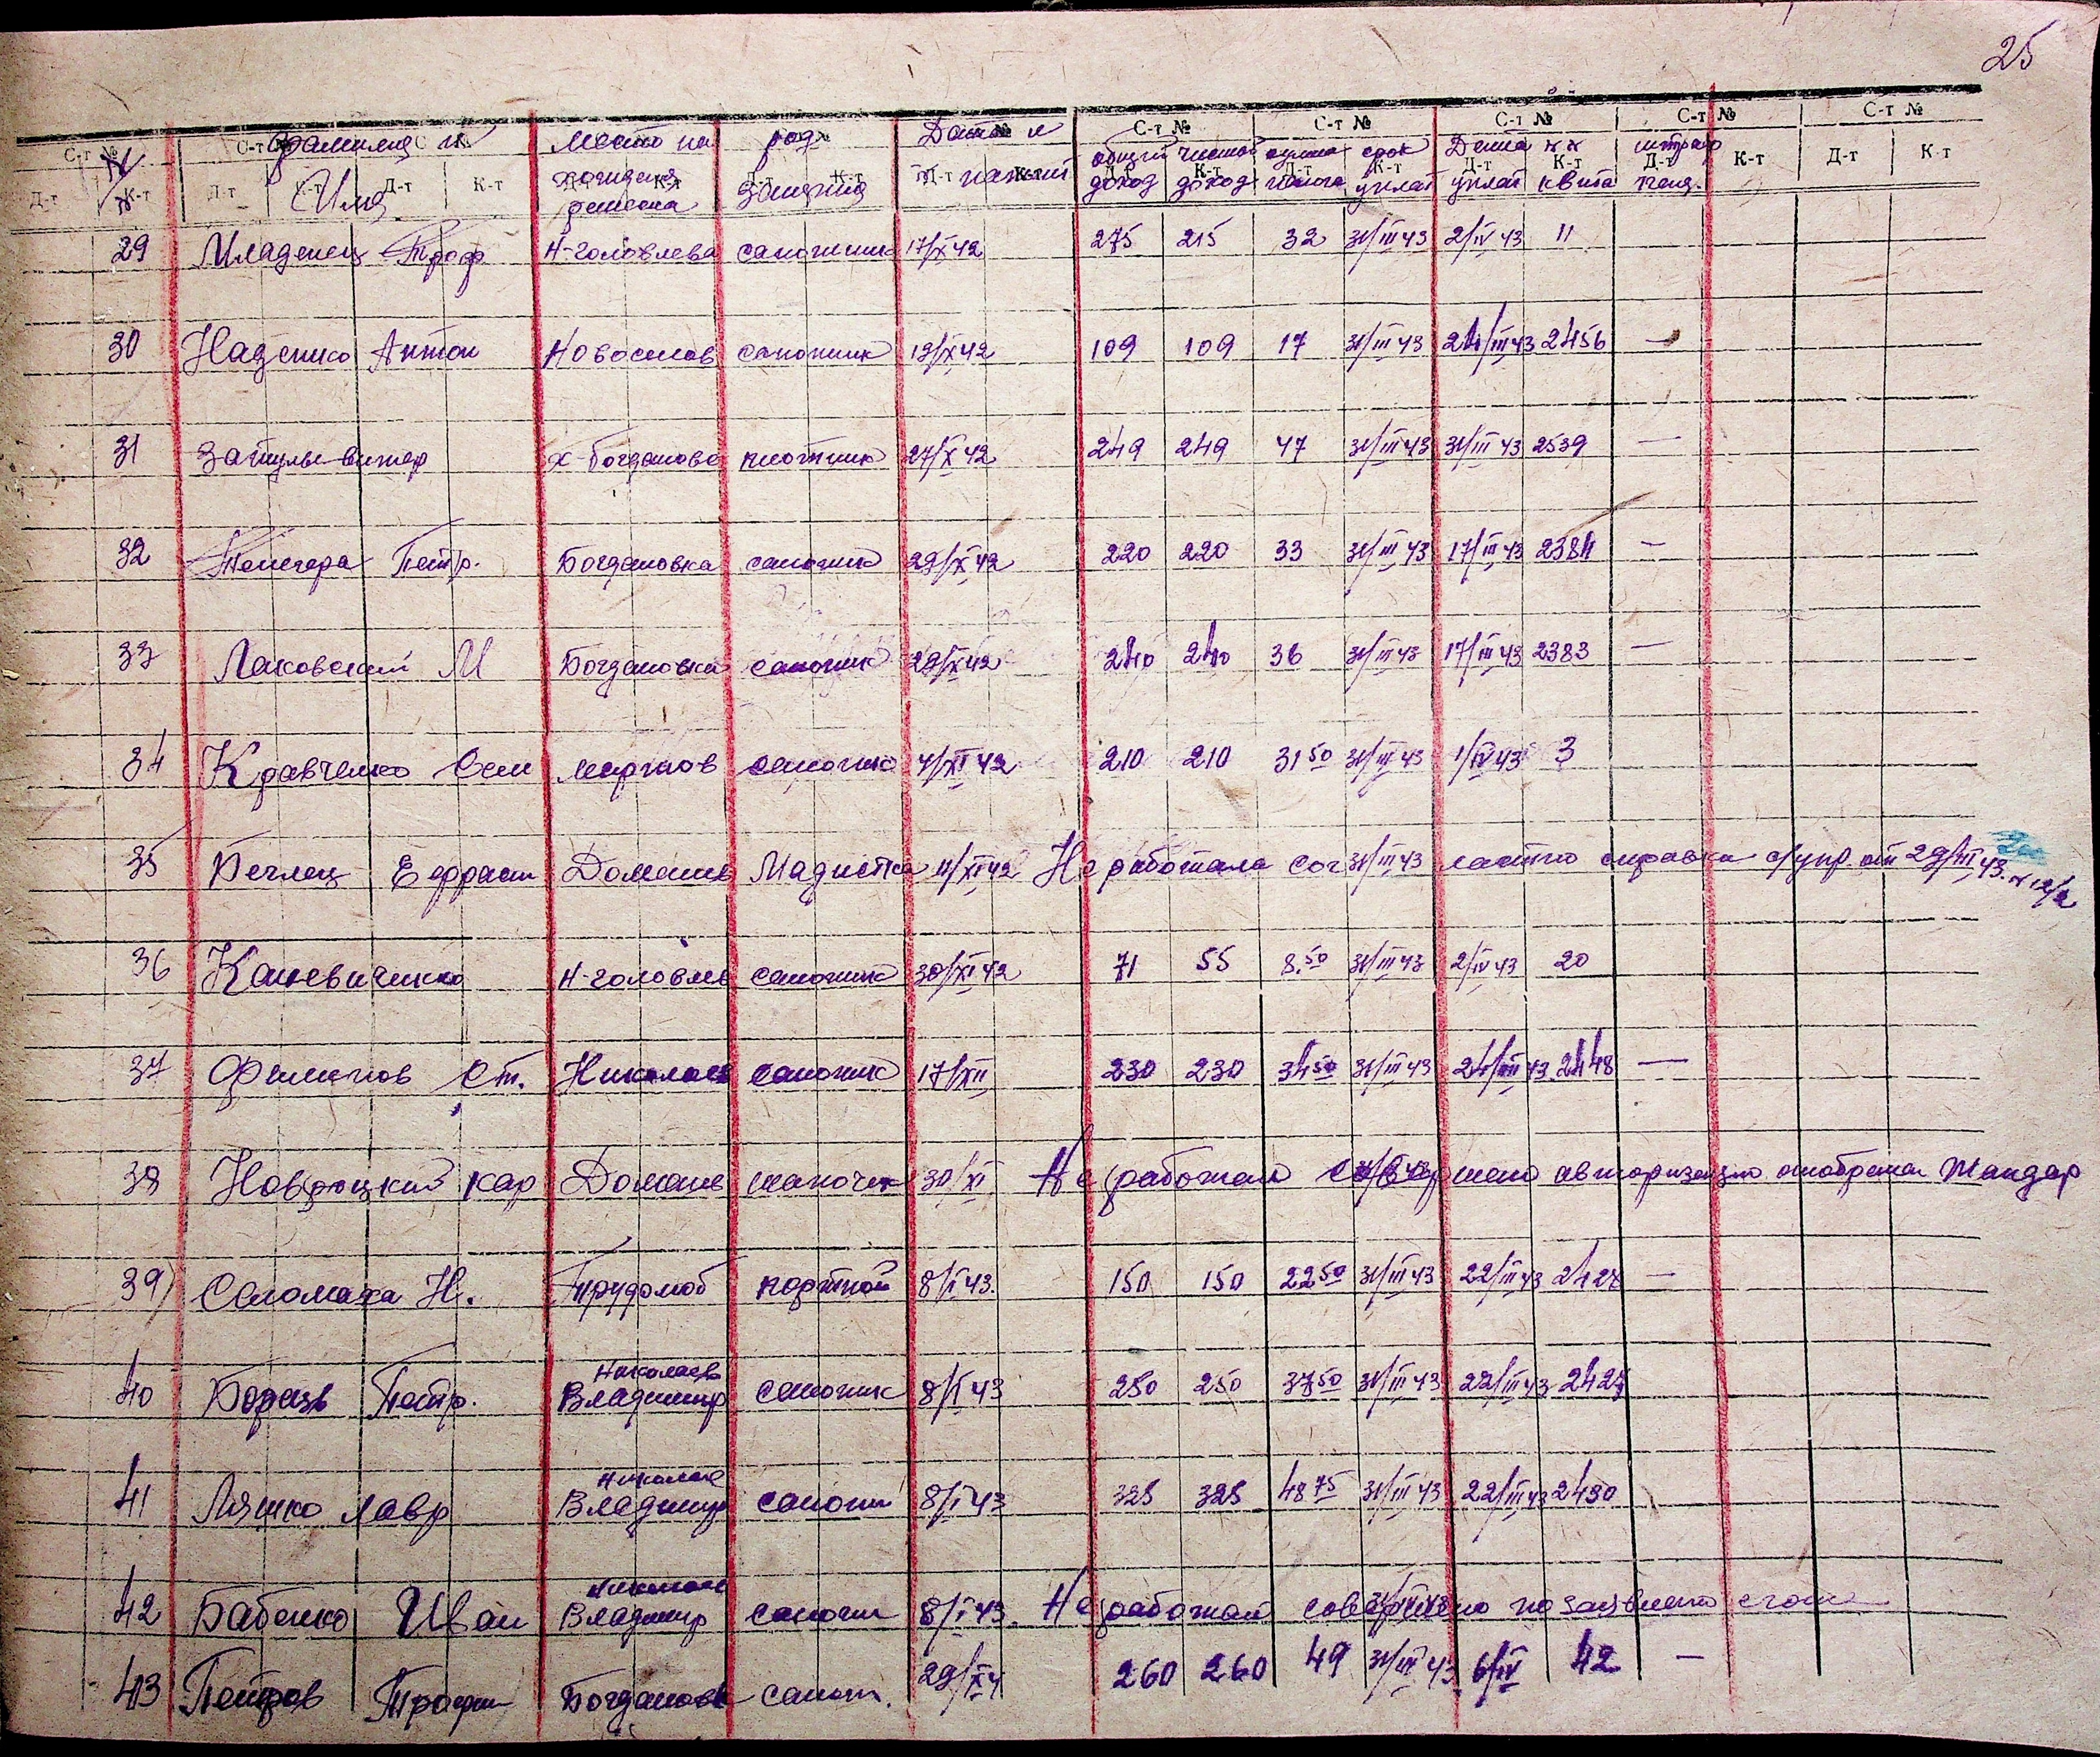 25
С-т № С-т № С-т № С-т № С-т № С-т № С-т № С-т №
№ фамилия и место на род Дата и общий чистый сумма срок Дата № № штраф
Д-т К-т Д-т К-т Д-т К-т Д-т К-т Д-т К-т Д-т К-т Д-т К-т Д-т К-т Д-т К-т Д-т К-т Д-т К-т
Имя хождения занятия доход доход налога уплат уплат квита пени.
29 Младенец Троф Н-головлева сапожник 17/X 42 275 215 32 31/III 43 2/IV 43 11
30 Наденко Антон Новоселов сапожник 13/X 42 109 109 17 31/III 43 24/III 43 2456 —
31 Затулы-витер х-Богданово плотник 27/X 42 249 249 47 31/III 43 31/III 43 2539 —
32 Петр. Богдановка сапожник 29/X 42 220 220 33 31/III 43 17/III 43 2384 —
33 Лаковский М Богдановка сапожник 29/X 42 240 240 36 31/III 43 17/III 43 2383 —
34 Кравченко Сем Мартов сапожник 4/XI 42 210 210 31 50 31/III 43 1/IV 43 3
35 Беглец Ефрасин Доманев Модистка 11/XI 42 Не работала 31/III 43 справка с/упр. от 29/III 43. № 12/2
36 Каневиченко Н-головлев сапожник 30/XI 42 71 55 8.50 31/III 43 2/IV 43 20
37 Филипов Ст. Николаев сапожник 17/XII 230 230 34 50 31/III 43 24/III 43 2448 —
38 Новроцкий кар Доманев шапочн 30/XI Не работал совершено авторизацию отобрана Жандар
39) Саломаха Н. Трудолюб портной 8/I 43. 150 150 22 50 31/III 43 22/III 43 2428 —
Николаев
40 Петр. Владимир сапожник 8/I 43 250 250 37 50 31/III 43 22/III 43 2427
Николаев
41 Ляшко Лавр Владимир сапожн 8/I 43 325 325 48 75 31/III 43 22/III 43 2430
Николаев
42 Бабенко Иван Владимир сапожн 8/I 43. Не работал совершено по заявлению
43 Петров Трофим Богдановк сапож. 29/X 4 260 260 49 31/III 43 6/IV 42 —